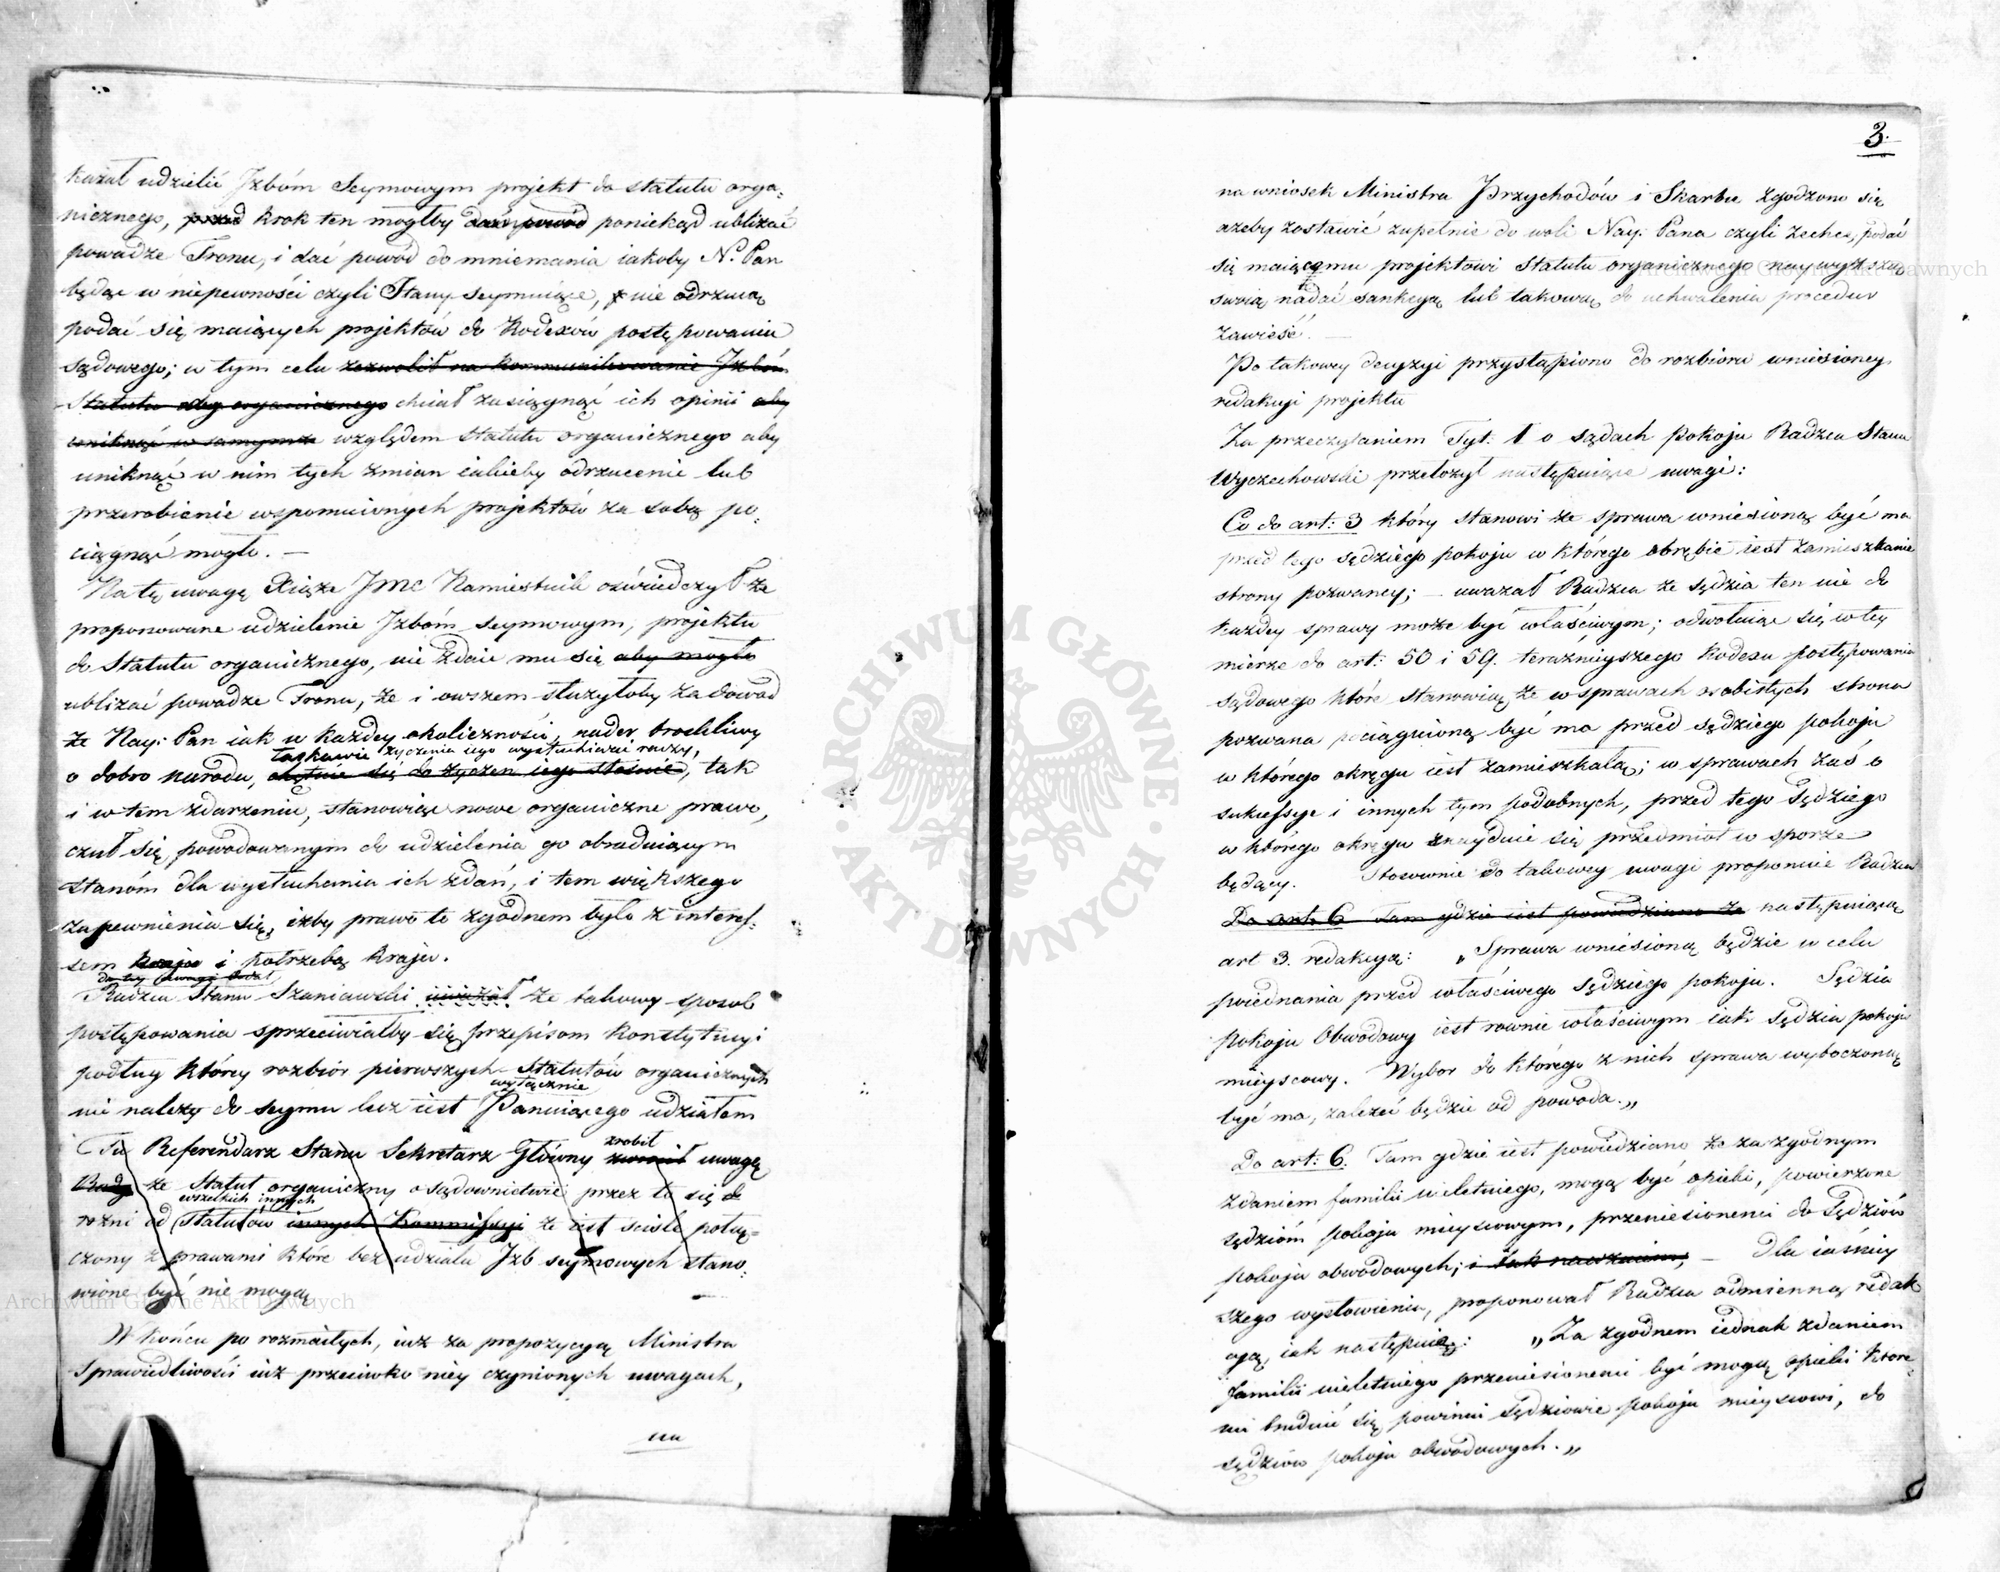 kazał udzielić Izbóm Seymowym projekt do statutu orga-
nicznego, przed krok ten mógłby dać powód poniekąd ubliżać
powadze Tronu, i dać powód do mniemania iakoby N. Pan
będąc w niepewności czyli Stany seymuiące, nie odrzucą
podać się maiących projektów do Kodexów postępowania
sądowego; w tym celu zezwolił na kommunikowanie Izbóm
Statutu organicznego chciał zasiągnąć ich opinii aby
uniknąć w samym względem statutu organicznego aby
uniknąć w nim tych zmian iakieby odrzucenie lub
przerobienie wspomnionych projektów za sobą po-
ciągnąć mogło. —
Na tę uwagę Xiąże JMC Namiestnik oświadczył że
proponowane udzielenie Izbóm seymowym, projektu
do Statutu organicznego, nie zdaie mu się aby mogło
ubliżać powadze Tronu, że i owszem służyłoby za dowód
że Nay: Pan iak w każdey okoliczności, nader troskliwy
łaskawie życzenia iego wysłuchiwać raczy,
o dobro narodu, chętnie się do życzeń iego stosuie, tak
i w tem zdarzeniu, stanowiąc nowe organiczne prawo,
czuł się powodowanym do udzielenia go obraduiącym
stanóm dla wysłuchania ich zdań, i tem większego
zapewnienia się, iżby prawo to zgodnem było z interes-
sem kraju i potrzebą kraju.
do tey uwagi dodał
Radzca Stanu Szaniawski uważał że takowy sposob
postępowania sprzeciwiałby się przepisom konstytucyi
podług którey rozbiór pierwszych Statutów organicznych
wyłącznie
nie należy do seymu lecz iest Panuiącego udziałem
zrobił
Tu Referendarz Stanu Sekretarz Główny zwrócił uwagę
że Statut organiczny o sądownictwie przez to się
wszelkich innych
rożni od Statutów innych Kommissyi że iest ściśle połą-
czony z prawami które bez udziału Izb seymowych stano-
wione być nie mogą
W końcu po rozmaitych, iuż za propozycyą Ministra
Sprawiedliwości iuż przeciwko niey czynionych uwagach,
na
3.
na wniosek Ministra Przychodów i Skarbu zgodzono się
ażeby zostawić zupełnie do woli Nay: Pana czyli zechce, podać
się maiącemu projektowi Statutu organicznego naywyższą
swoią nadać sankcyą lub takową do uchwalenia procedur
zawieść. —
Po takowey decyzyi przystąpiono do rozbioru wniesioney
redakcyi projektu
Za przeczytaniem Tyt: I o sądach pokoju Radzca Stanu
Wyczechowski przełożył następuiące uwagi:
Co do art: 3 który stanowi że sprawa wniesioną być ma
przed tego sędziego pokoju w którego obrębie iest zamieszkanie
strony pozwaney; — uważał Radzca że sędzia ten nie do
każdey sprawy może być właściwym; odwołuiąc się w tey
mierze do art: 50 i 59. teraznieyszego kodexu postępowania
sądowego które stanowią, że w sprawach osobistych strona
pozwana pociągnioną być ma przed sędziego pokoju
w którego okręgu iest zamieszkałą; w sprawach zaś o
sukcessye i innych tym podobnych, przed tego Sędziego
w którego okręgu znayduie się przedmiot w sporze
będący. Stosownie do takowey uwagi proponuie Radzca
Do art: 6 Tam gdzie iest powiedziano że następuiącą
art 3. redakcyą: „Sprawa wniesioną będzie w celu
poiednania przed właściwego Sędziego pokoju. Sędzia
pokoju Obwodowy iest rownie właściwym iak sędzia pokoju
mieyscowy. Wybor do którego z nich sprawa wytoczoną
być ma, zależeć będzie od powoda.„
Do art: 6. Tam gdzie iest powiedziano że za zgodnym
zdaniem familii nieletniego, mogą być opieki, powierzone
sędziom pokoju mieyscowym, przeniesionemi do Sędziów
pokoju obwodowych; i — Dla iaśniey
szego wysłowienia, proponował Radzca odmienną redak
cyą, iak następuie: „Za zgodnem iednak zdaniem
familii nieletniego przeniesionemi być mogą opieki które
mi trudnić się powinni Sędziowie pokoju mieyscowi, do
sędziów pokoju obwodowych.„
ARCHIWUM GŁÓWNE AKT DAWNYCH
Archiwum Główne Akt Dawnych
Archiwum Główne Akt Dawnych